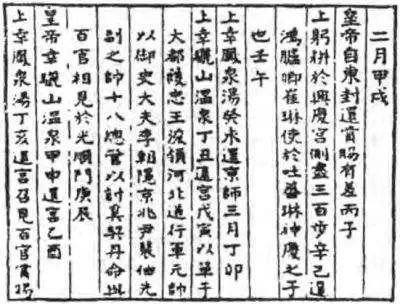 二月甲戌
皇帝自東封還賞賜有差丙子
上躬耕於興慶宮側盡三百步辛已遣
鴻臚卿崔琳使於吐蕃琳神慶之子
也壬午
上幸鳳泉湯癸未還京師三月丁卯
上幸驪山溫泉丁丑還宮戊寅以單于
大都護忠王浚領河北道行軍元帥
以御史大夫李朝隱京兆尹裴伷先
副之帥十八總管以討奚契丹命
百官相見於光順門庚辰
皇帝幸驪山溫泉甲申還宮乙酉
上幸鳳泉湯丁亥還宮召見百官賞賜